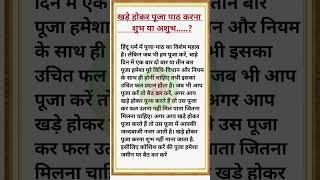 खड़े होकर पूजा पाठ करना
शुभ या अशुभ.....?
हिंदू धर्म में पूजा-पाठ का विशेष महत्व
है। लेकिन जब भी हम पूजा करें, चाहे
दिन में एक बार दो बार या तीन बार
पूजा हमेशा पूरे विधि-विधान और नियम
के साथ ही होनी चाहिए तभी इसका
उचित फल प्रदान होता है। जब भी आप
पूजा करें तो बैठ कर करें, अगर आप
खड़े होकर पूजा करते हैं तो उस पूजा
का फल उतना नहीं मिल पाता जितना
मिलना चाहिए। अगर आप खड़े होकर
पूजा करते हैं तो उस पूजा में आपकी
जल्दबाजी नजर आती है। खड़े होकर
पूजा करना शुभ नहीं माना जाता है.
इसीलिए कोशिश करें की पूजा हमेशा
जमीन पर बैठ कर करें